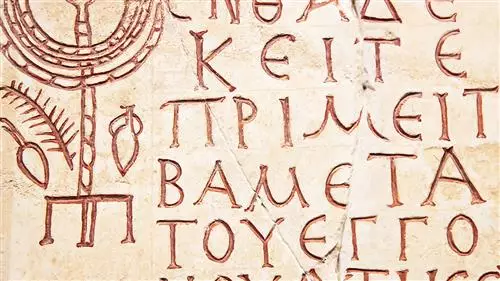 ΕΝΘΑΔΕ
ΚΕΙΤΕ
ΠΡΙΜΕΙΤ
ΒΑΜΕΤΑ
ΤΟΥΕΓΓΟ